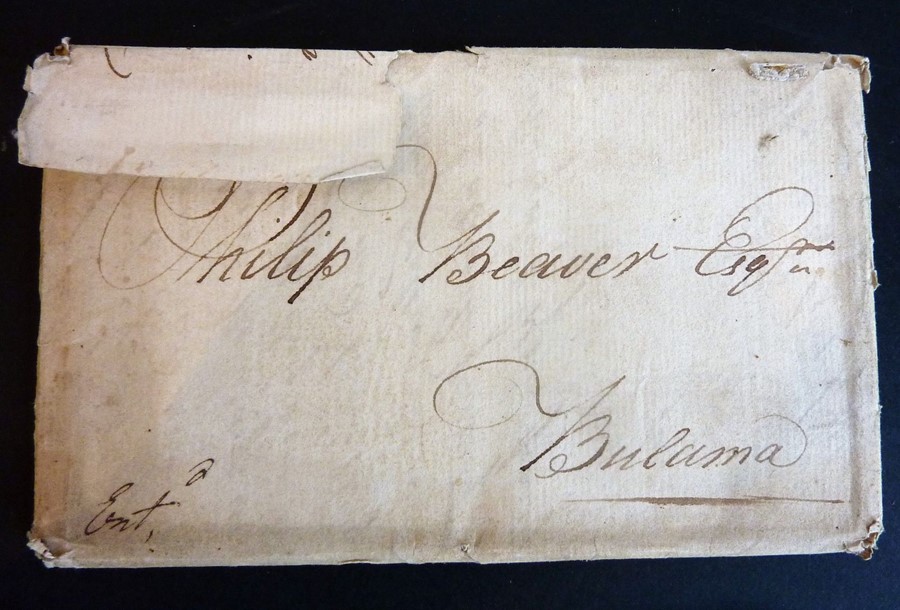 Philip Beaver Esqr
Bulama
Entd